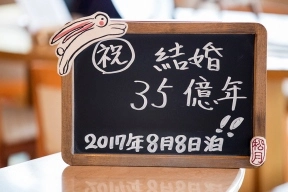 祝 結婚
35億年!!
2017年8月8日泊
松月